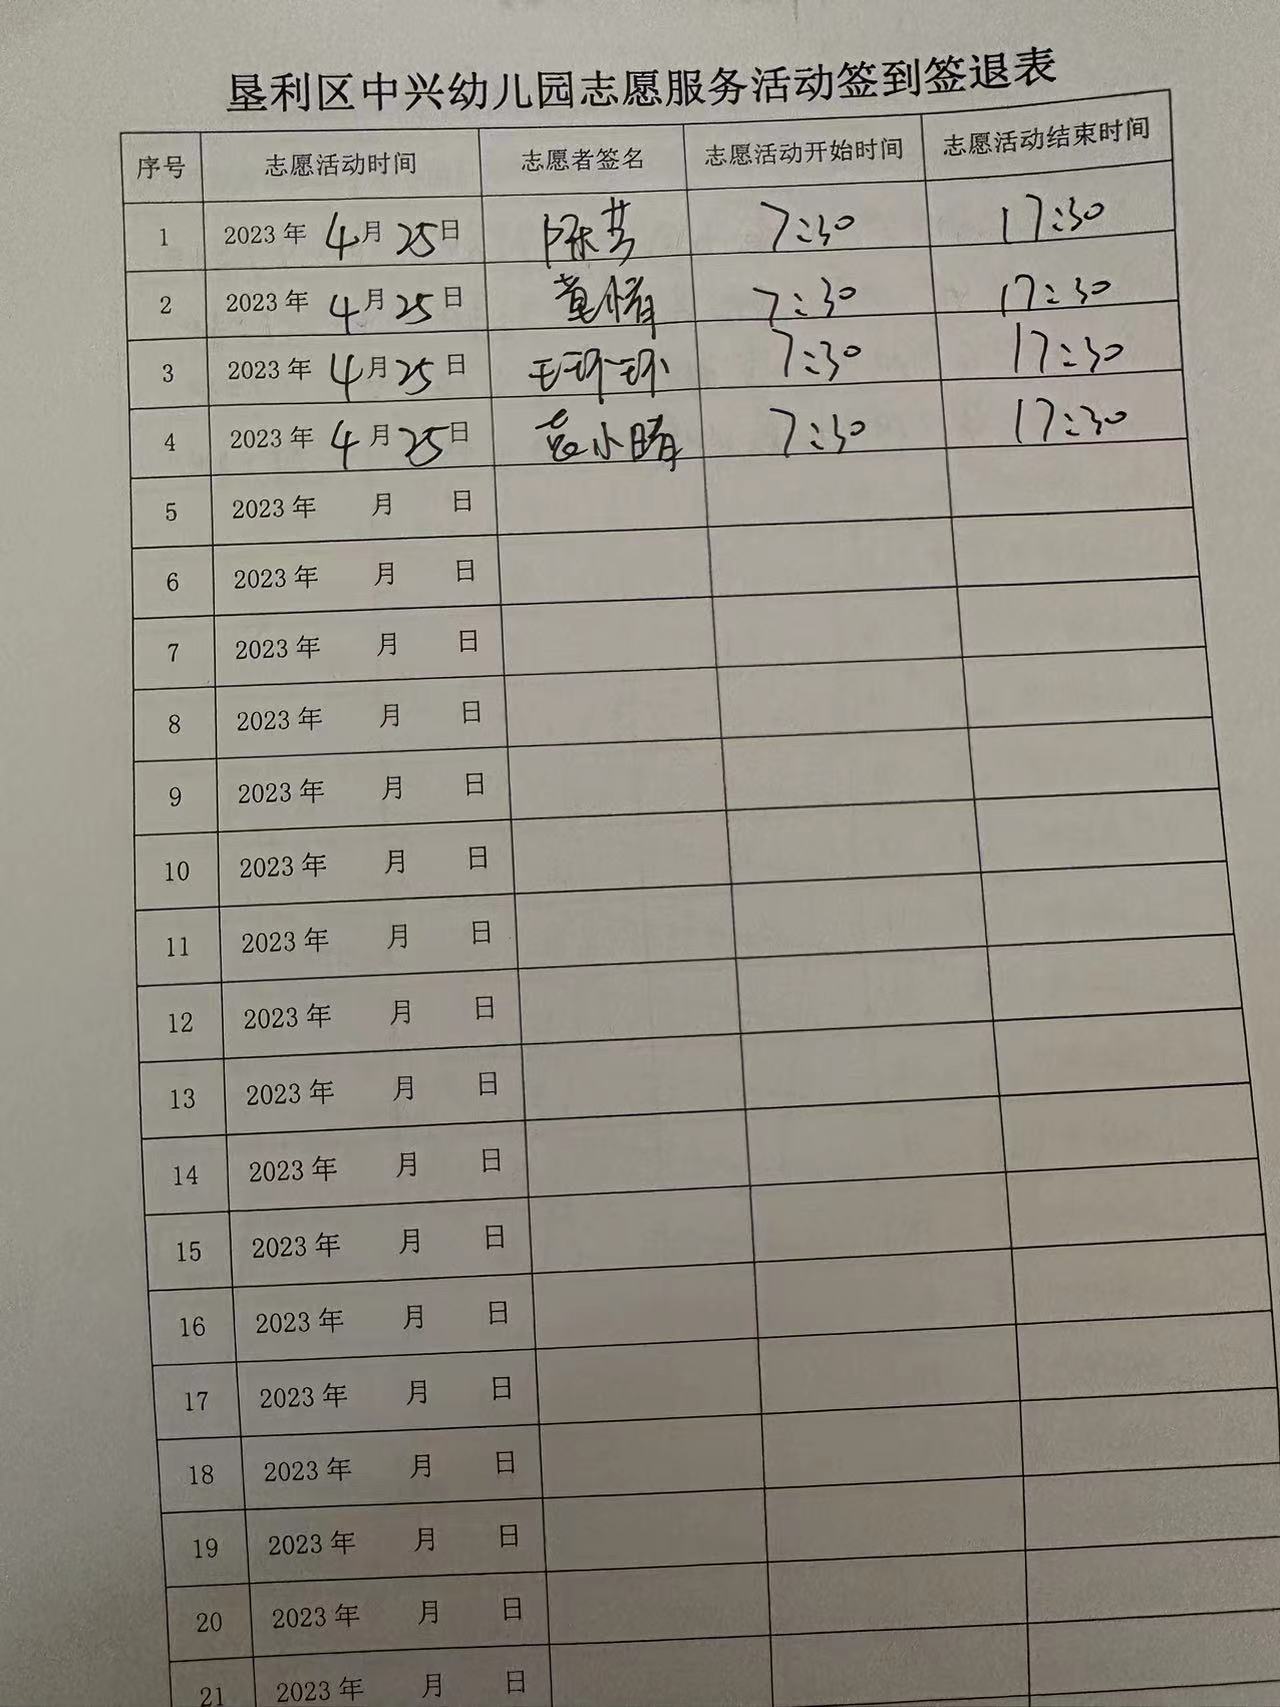 垦利区中兴幼儿园志愿服务活动签到签退表
序号 志愿活动时间 志愿者签名 志愿活动开始时间 志愿活动结束时间
1 2023年 4月 25日 陈芳 7:30 17:30
2 2023年 4月 25日 7:30 17:30
3 2023年 4月 25日 王环环 7:30 17:30
4 2023年 4月 25日 袁小晴 7:30 17:30
5 2023年 月 日
6 2023年 月 日
7 2023年 月 日
8 2023年 月 日
9 2023年 月 日
10 2023年 月 日
11 2023年 月 日
12 2023年 月 日
13 2023年 月 日
14 2023年 月 日
15 2023年 月 日
16 2023年 月 日
17 2023年 月 日
18 2023年 月 日
19 2023年 月 日
20 2023年 月 日
21 2023年 月 日